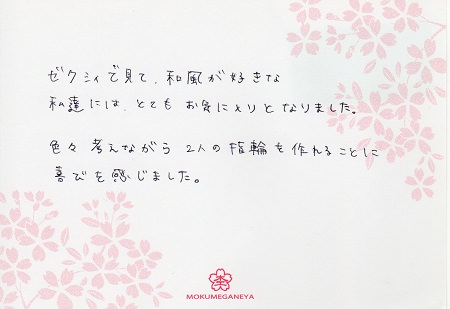 ゼクシィで見て、和風が好きな
私達には、とてもお気に入りとなりました。
色々考えながら2人の指輪を作れることに
喜びを感じました。
MOKUMEGANEYA